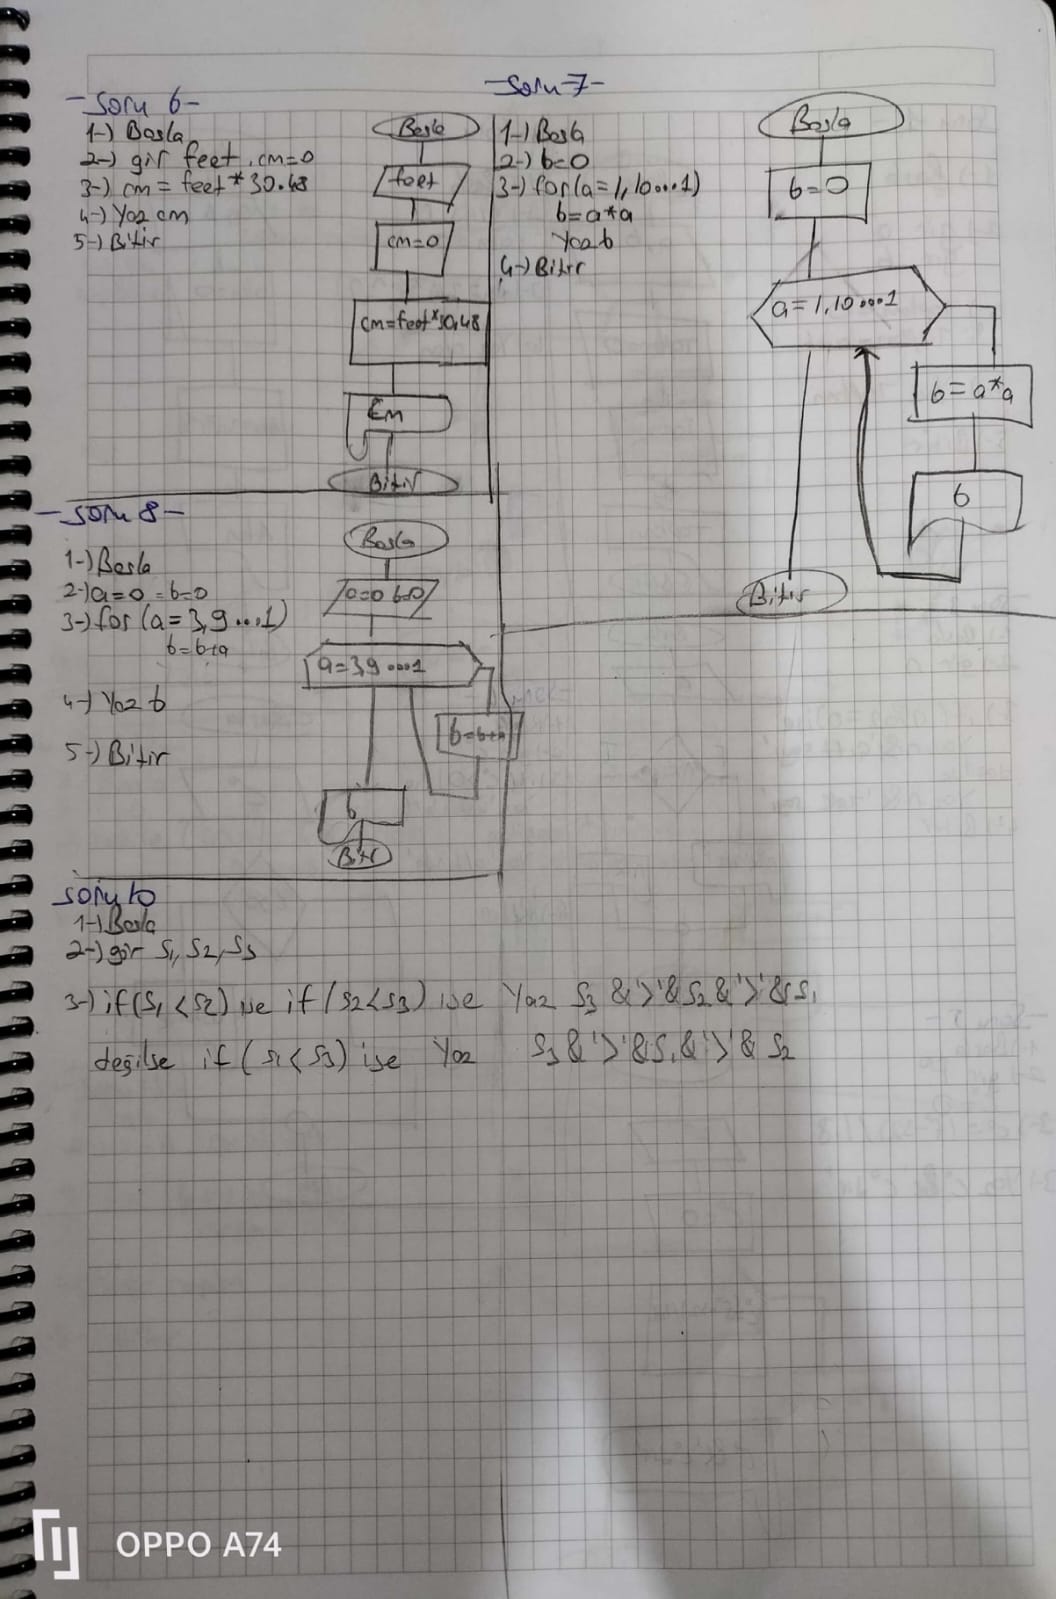 -Soru 6-
1-) Basla
2-) gir feet, cm=0
3-) cm = feet*30.48
4-) Yaz cm
5-) Bitir
Basla
feet
cm=0
cm=feet*30,48
cm
Bitir
-Soru 7-
1-) Basla
2-) b=0
3-) for(a=1,10...1)
b=a*a
Yaz b
4-) Bitir
Basla
b=0
a=1,10...1
b=a*a
b
Bitir
-Soru 8-
1-) Basla
2-) a=0 =b=0
3-) for (a=3,9...1)
b=b+a
4-) Yaz b
5-) Bitir
Basla
a=0 b=0
a=3,9...1
b=b+a
b
Bitir
Soru 10
1-) Basla
2-) gir S1, S2, S3
3-) if(S1<S2) ise if (S2<S3) ise Yaz S3 &'>'&S2&'>'&S1
değilse if (S1<S3) ise Yaz S3&'>'&S1&'>'&S2
OPPO A74